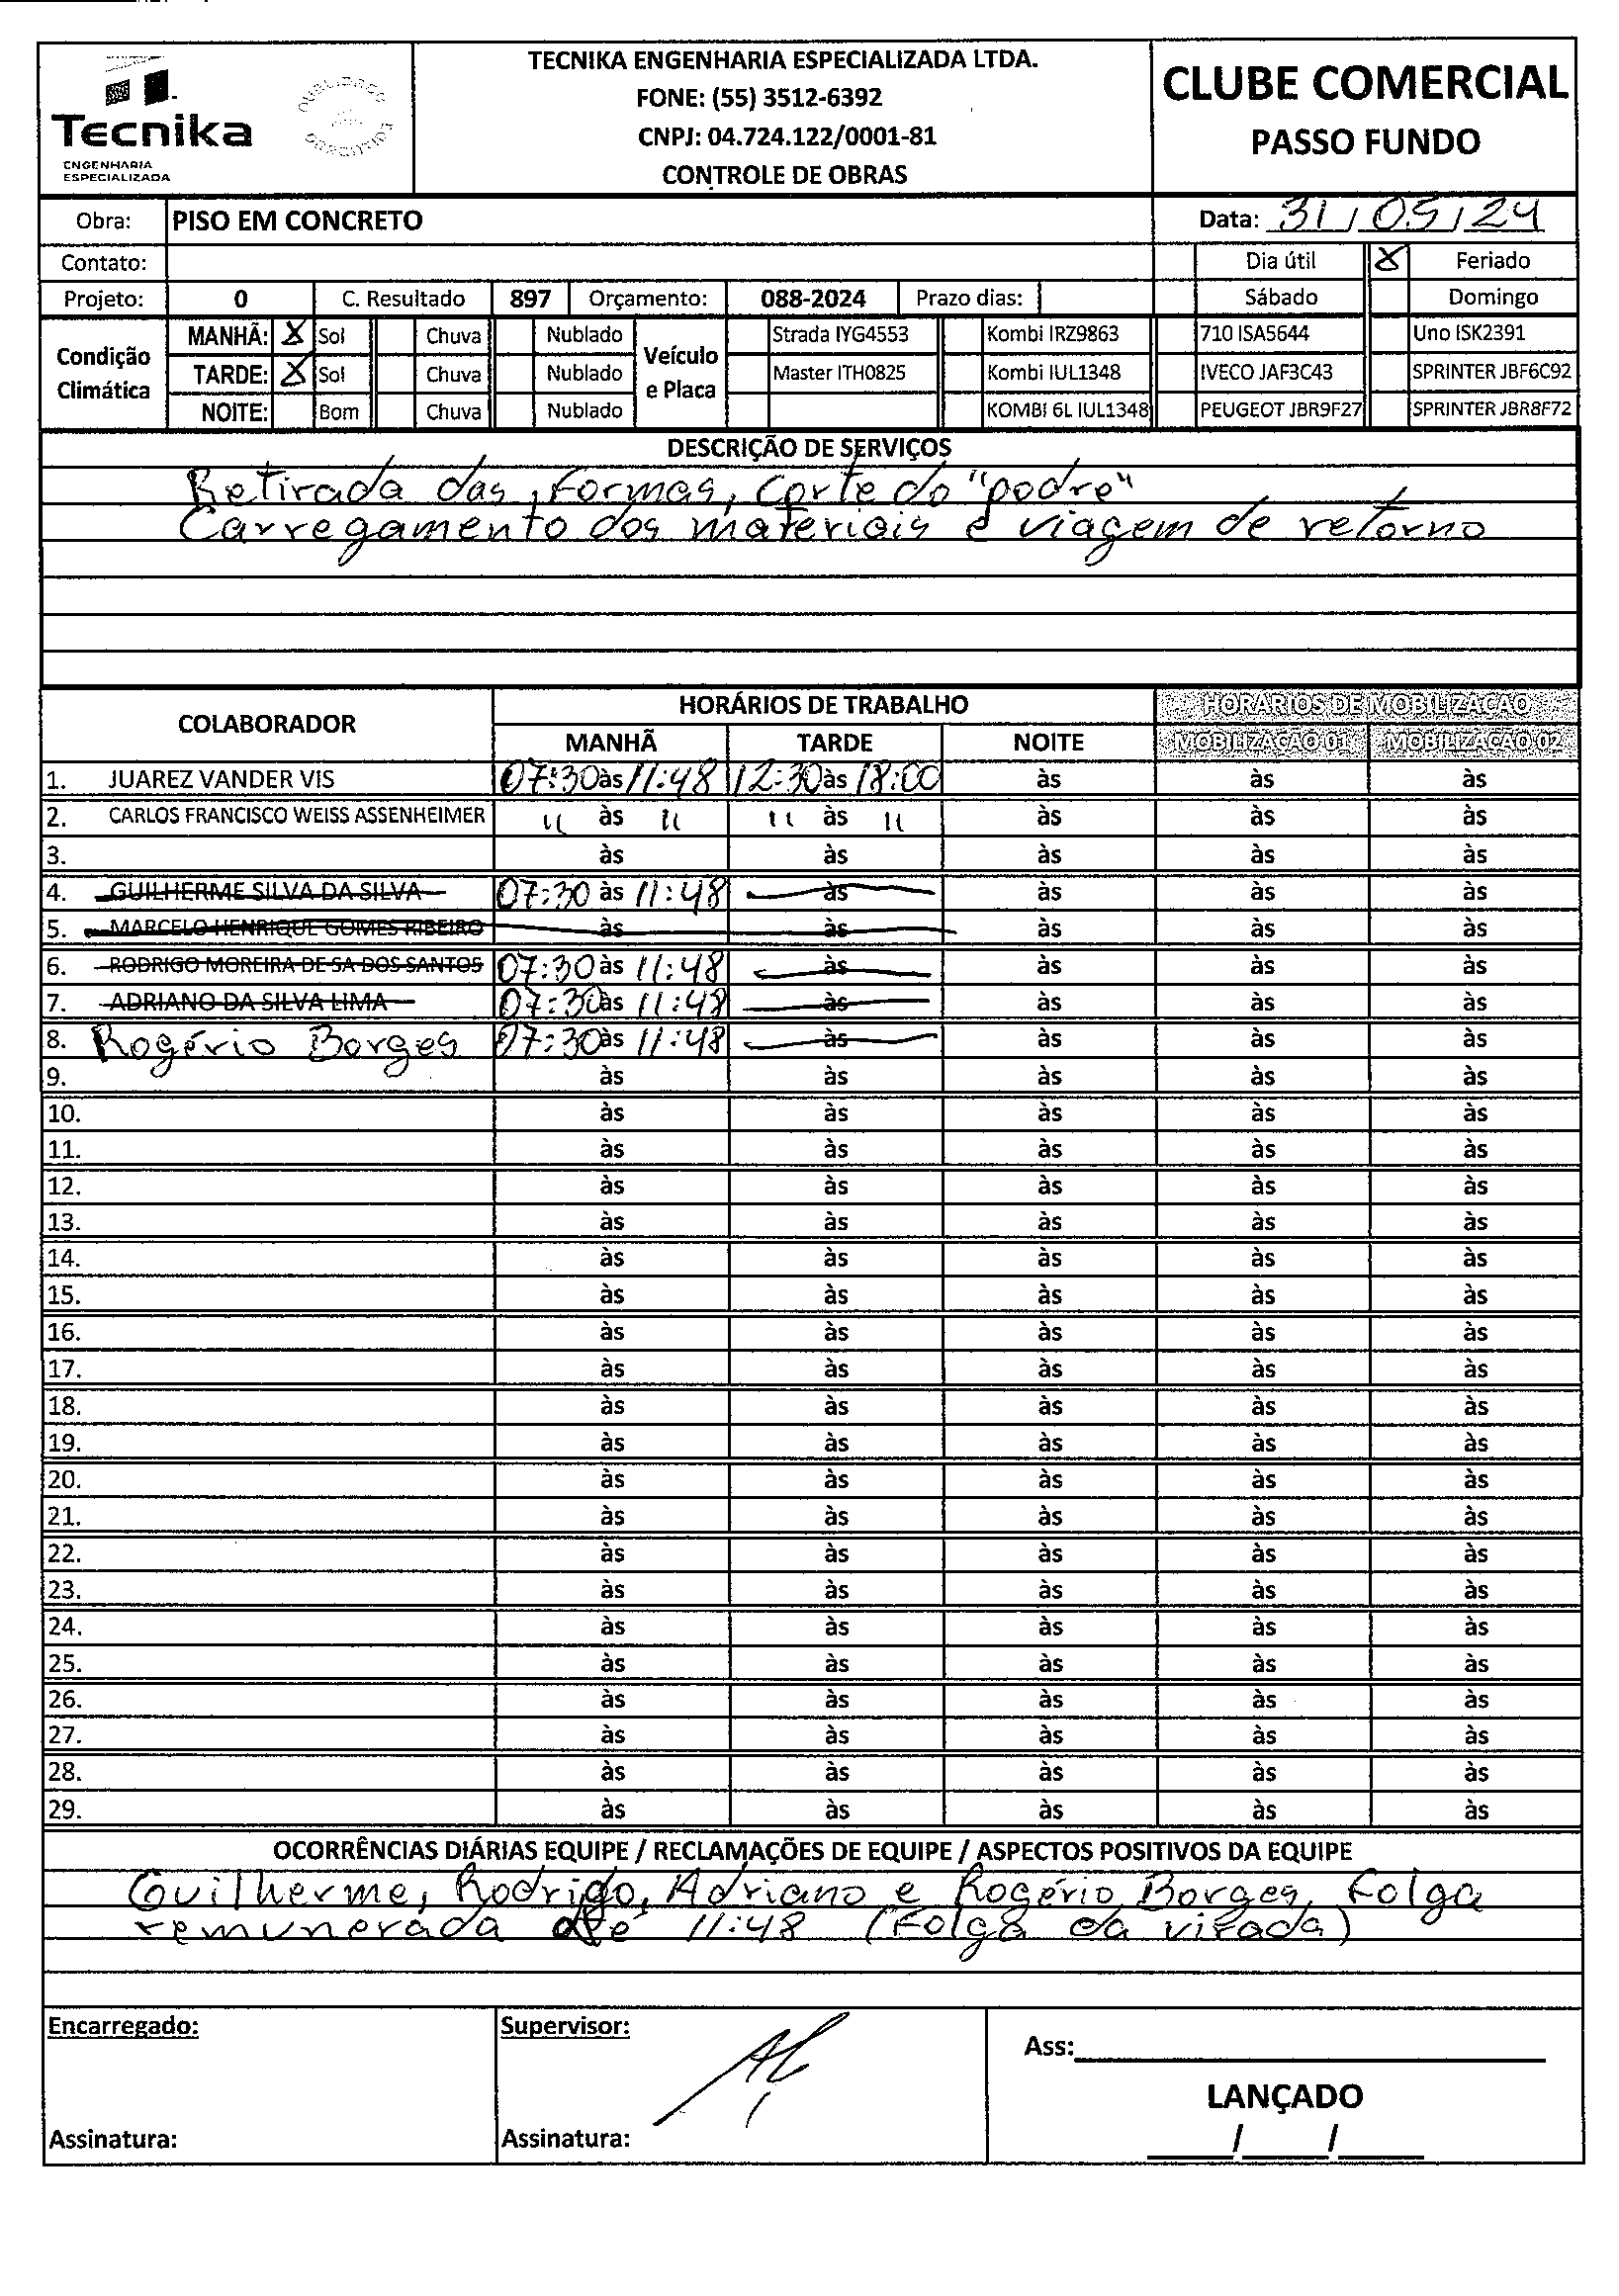 Tecnika
ENGENHARIA
ESPECIALIZADA
TECNIKA ENGENHARIA ESPECIALIZADA LTDA.
FONE: (55) 3512-6392
CNPJ: 04.724.122/0001-81
CONTROLE DE OBRAS
CLUBE COMERCIAL
PASSO FUNDO
Obra: PISO EM CONCRETO Data: 31/05/24
Contato: Dia útil X Feriado
Projeto: 0 C. Resultado 897 Orçamento: 088-2024 Prazo dias: Sábado Domingo
Condição Climática Veículo e Placa
MANHÃ: X Sol Chuva Nublado Strada IYG4553 Kombi IRZ9863 710 ISA5644 Uno ISK2391
TARDE: X Sol Chuva Nublado Master ITH0825 Kombi IUL1348 IVECO JAF3C43 SPRINTER JBF6C92
NOITE: Bom Chuva Nublado KOMBI 6L IUL1348 PEUGEOT JBR9F27 SPRINTER JBR8F72
DESCRIÇÃO DE SERVIÇOS
Retirada das formas, corte do "podre"
Carregamento dos materiais e viagem de retorno
COLABORADOR HORÁRIOS DE TRABALHO HORÁRIOS DE MOBILIZAÇÃO
MANHÃ TARDE NOITE MOBILIZAÇÃO 01 MOBILIZAÇÃO 02
1. JUAREZ VANDER VIS 07:30 às 11:48 12:30 às 18:00 às às às
2. CARLOS FRANCISCO WEISS ASSENHEIMER " às " " às " às às às
3. às às às às às
4. GUILHERME SILVA DA SILVA 07:30 às 11:48 às às às às
5. MARCELO HENRIQUE GOMES RIBEIRO às às às às às
6. RODRIGO MOREIRA DE SA DOS SANTOS 07:30 às 11:48 às às às às
7. ADRIANO DA SILVA LIMA 07:30 às 11:48 às às às às
8. Rogério Borges 07:30 às 11:48 às às às às
9. às às às às às
10. às às às às às
11. às às às às às
12. às às às às às
13. às às às às às
14. às às às às às
15. às às às às às
16. às às às às às
17. às às às às às
18. às às às às às
19. às às às às às
20. às às às às às
21. às às às às às
22. às às às às às
23. às às às às às
24. às às às às às
25. às às às às às
26. às às às às às
27. às às às às às
28. às às às às às
29. às às às às às
OCORRÊNCIAS DIÁRIAS EQUIPE / RECLAMAÇÕES DE EQUIPE / ASPECTOS POSITIVOS DA EQUIPE
Guilherme, Rodrigo, Adriano e Rogério Borges, Folga
remunerada até 11:48 (Folga da virada)
Encarregado: Supervisor: Ass:
LANÇADO
Assinatura: Assinatura: / /